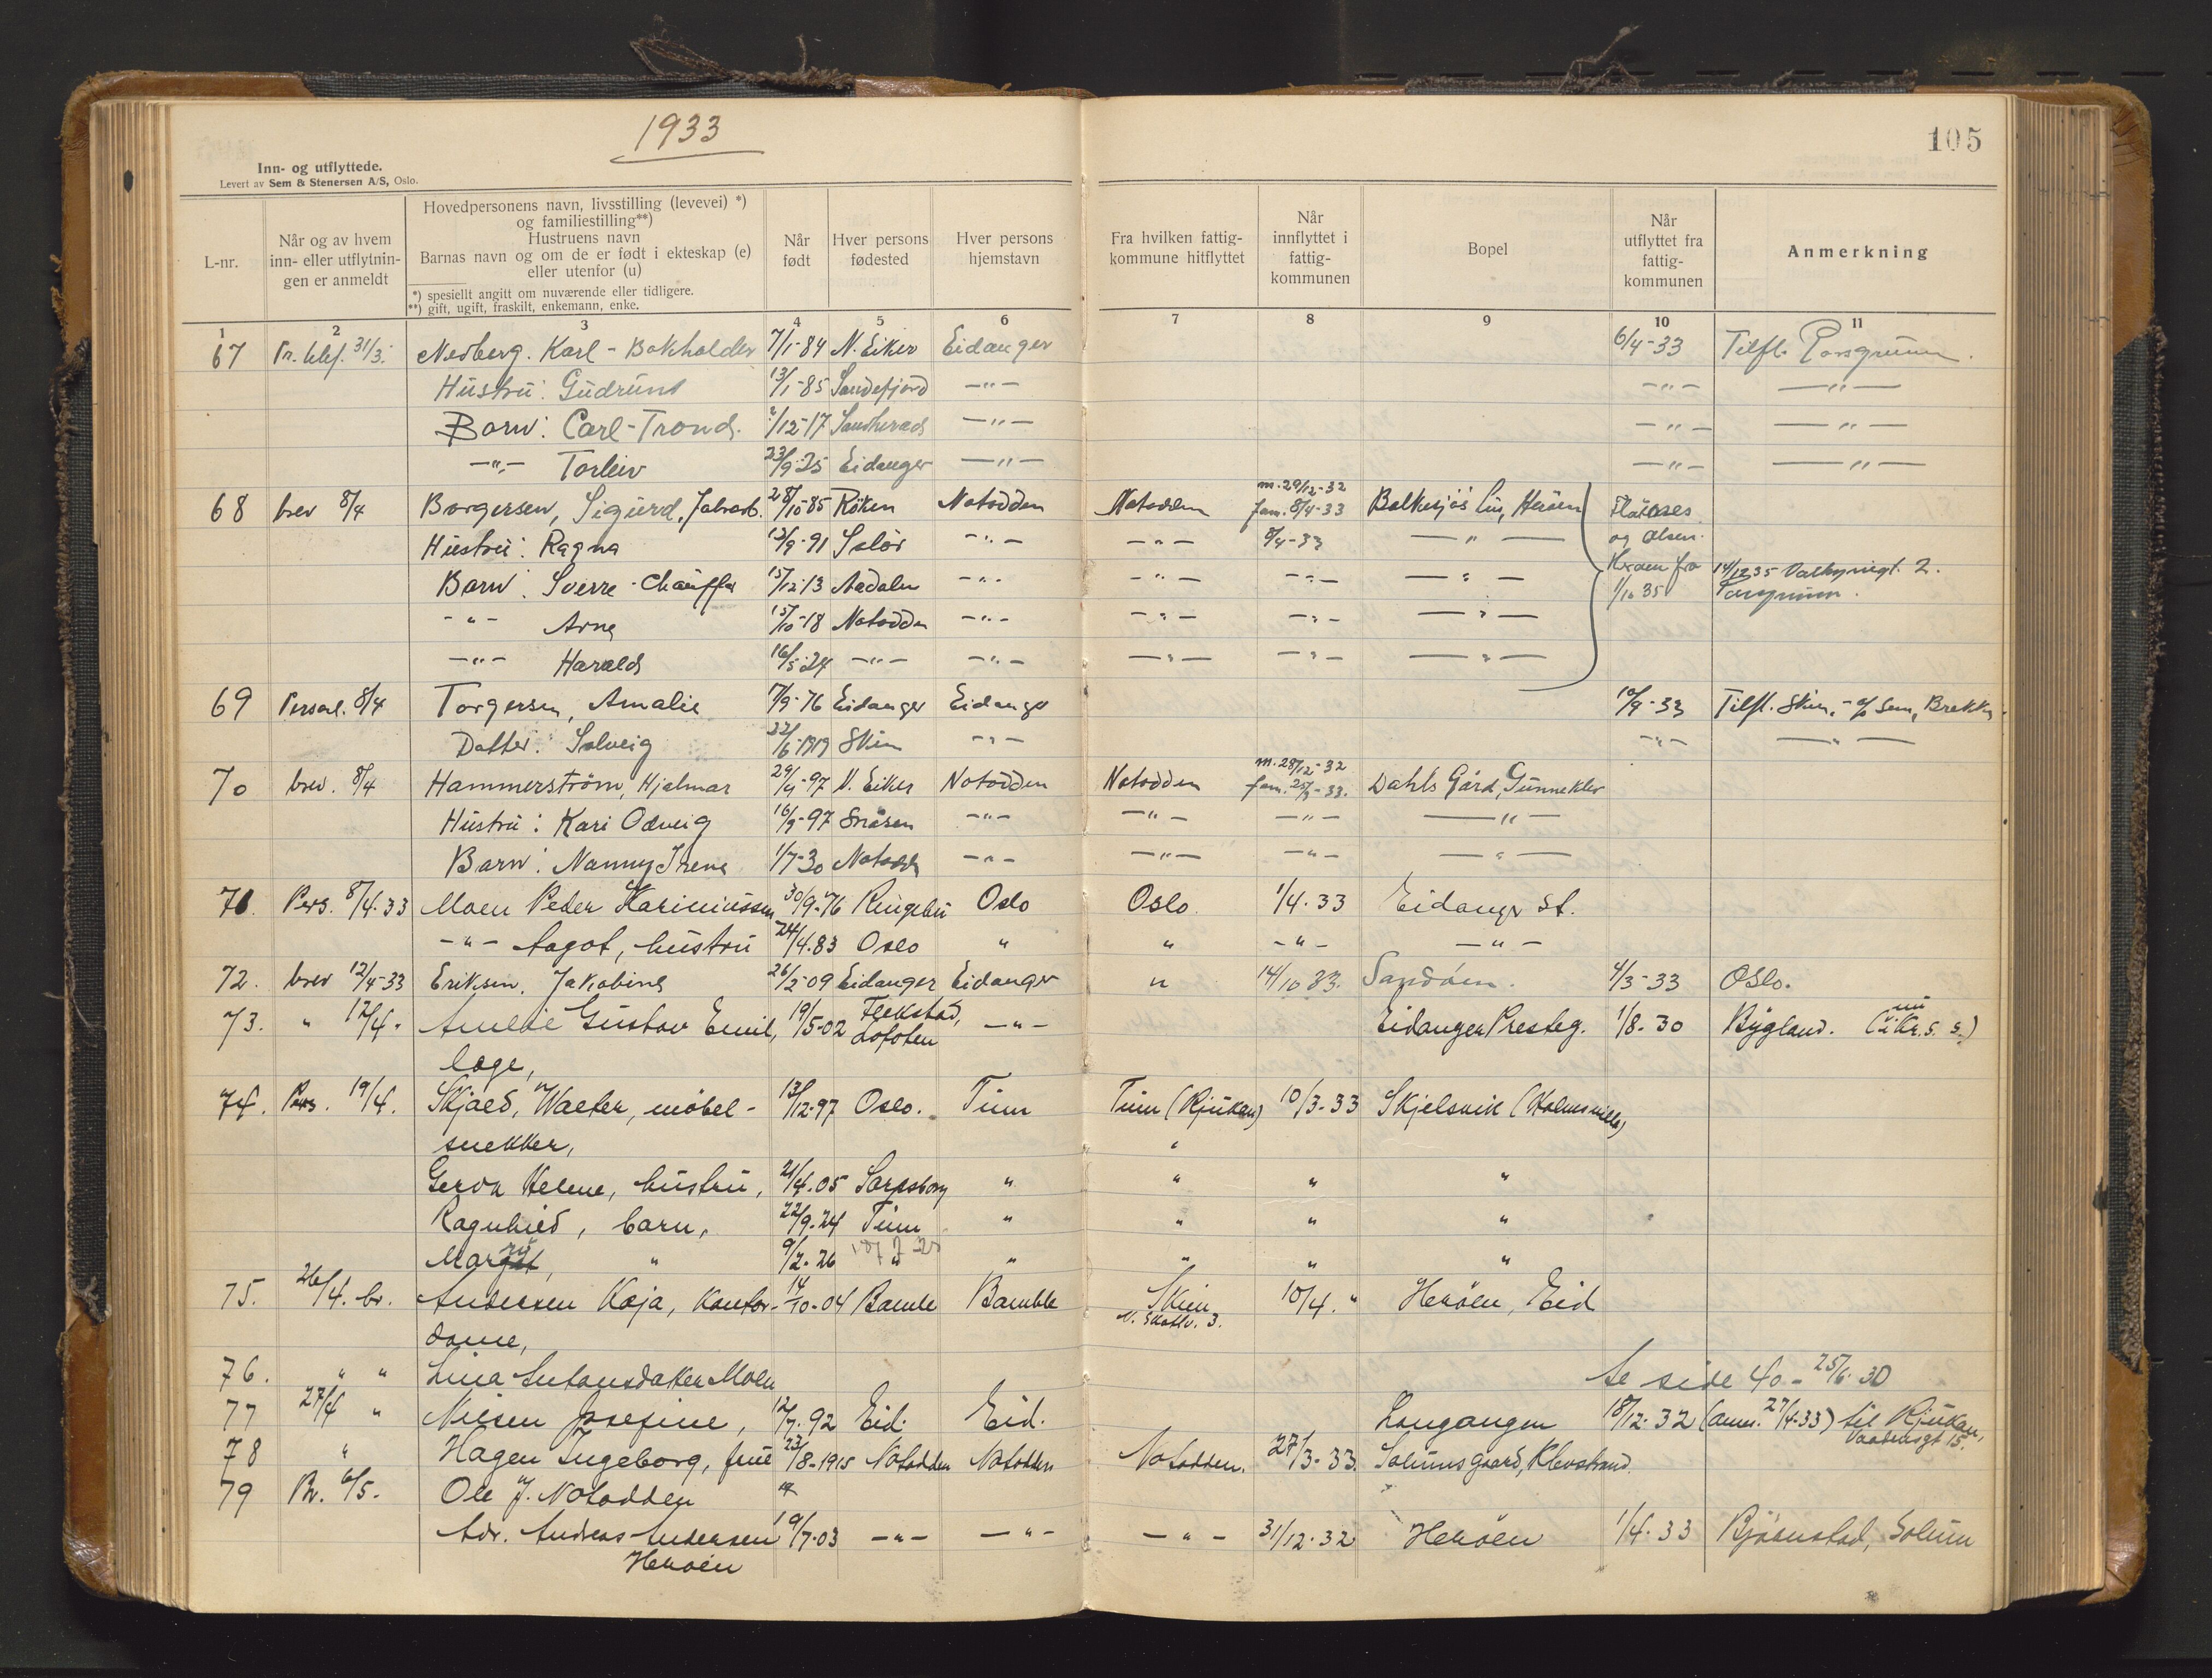 1933
105
Inn- og utflyttede.
Levert av Sem & Stenersen A/S, Oslo.
L-nr.
Når og av hvem
inn- eller utflytnin-
gen er anmeldt
Hovedpersonens navn, livsstilling (levevei) *)
og familiestilling**)
Hustruens navn
Barnas navn og om de er født i ekteskap (e)
eller utenfor (u)
*) spesiellt angitt om nuværende eller tidligere.
**) gift, ugift, fraskilt, enkemann, enke.
Når
født
Hver persons
fødested
Hver persons
hjemstavn
Fra hvilken fattig-
kommune hitflyttet
Når
innflyttet i
fattig-
kommunen
Bopel
Når
utflyttet fra
fattig-
kommunen
Anmerkning
1 2 3 4 5 6 7 8 9 10 11
67 Pr. telef. 31/3. Nedberg. Karl - Bokholder 7/1-84 N. Eiker Eidanger 6/4-33 Tilfl. Porsgrunn.
Hustru: Gudrun 13/1-85 Sandefjord -"- -"- -"-
Barn: Carl-Trond. /12-17 Sauherad -"- -"- -"-
-"- Torleiv 23/9-25 Eidanger -"- -"- -"-
68 brev 8/4 Borgersen, Sigurd, Fabrarb. 28/10-85 Röken Notodden Notodden m. 29/12-32 fam. 8/4-33 Bolkesjös Heröen
og Olsen.
Hustru: Ragna 13/9-91 Solör -"- -"- 8/4-33 -"-
Heröen fra
Barn: Sverre - Chauffør 15/12-13 Aadalen -"- -"- -"- -"- 1/10 35 14/12 35 2.
Porsgrunn.
-"- Arne 15/10-18 Notodden -"- -"- -"- -"-
-"- Harald 16/5-24 -"- -"- -"- -"- -"-
69 Personl. 8/4 Torgersen, Amalie 7/9-76 Eidanger Eidanger 10/9-33 Tilfl. Skien, - c/o Sem, Brekke.
Datter: Solveig /6-1919 Skien -"- -"- -"-
70 brev. 8/4 Hammerström, Hjalmar 29/4-97 N. Eiker Notodden Notodden m. 28/12-32 fam. 25/3-33. Dahls Gård, Gunneklev
Hustru: Kari Odveig 16/9-97 Snåsen -"- -"- -"- -"-
Barn: Nanny Irene 1/7-30 Notodden -"- -"- -"- -"-
71. Pers. 8/4.33 Moen Peder Kariniussen 30/9-76 Ringebu Oslo Oslo 1/4.33 Eidanger st.
-"- Aagot, hustru 24/4.83 Oslo " " -"- -"-
72. brev 12/4-33 Eriksen. Jakobine 26/2-09 Eidanger Eidanger " 14/10 33. Sandöen. 4/3-33 Oslo.
73. " 12/4. Amelie Gustav Emil, 19/5-02 Flakstad, Lofoten -"- Eidanger Presteg. 1/8-30 Bygland. (nu i Kr. S. S.)
lege,
74. Pers. 19/4. Skjold, Walter, möbel- 13/12-97 Oslo. Tinn Tinn (Rjukan) 10/3-33 Skjelsvik (Holmsvilla)
snekker, "
Gerda Helene, hustru, 21/4.05 Sarpsborg " " " "
Ragnhild, barn, 22/9.24 Tinn " " " "
Margit, " 9/2-26 " " " " "
75. 26/4. br. Andersen Kaja, kontor- 14/10-04 Bamble Bamble Skien 10/4. " Heröen, Eid
N. 3.
dame,
76. " " Lina Antonsdatter Moen Se side 40 - 25/6.30
77 27/4 " Nilsen Josefine, 12/7.92 Eid. Eid. Langangen 18/12-32 (anm. 27/4-33) til Rjukan,
15.
78 " Hagen Ingeborg, frue 23/8-1915 Notodden Notodden Notodden. 27/3-33. Solumsgaard, Klevstrand.
79 Br. 6/5. Ole J. Notodden "
Adr. Andreas Andersen 19/7-03 -"- -"- -"- 31/12-32 Heröen 1/4-33 Bjørnstad, Solum
Heröen